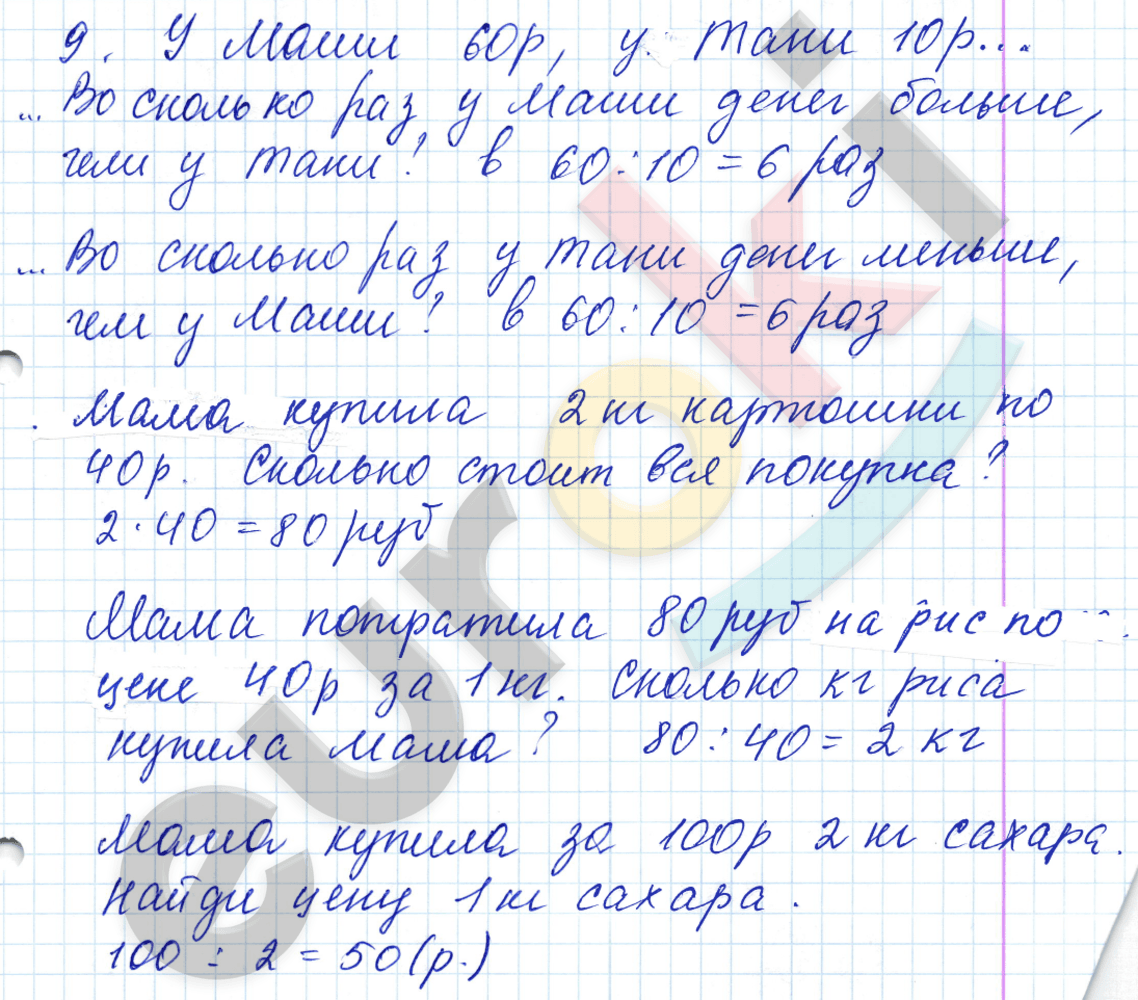 9. У Маши 60р, у Тани 10р...
... Во сколько раз у Маши денег больше,
чем у Тани? в 60:10=6 раз
... Во сколько раз у Тани денег меньше,
чем у Маши? в 60:10=6 раз
Мама купила 2 кг картошки по
40р. Сколько стоит вся покупка?
2·40=80 руб
Мама потратила 80 руб на рис по
цене 40р за 1 кг. Сколько кг риса
купила мама? 80:40=2 кг
Мама купила за 100р 2 кг сахара.
Найди цену 1 кг сахара.
100:2=50(р.)
euroki